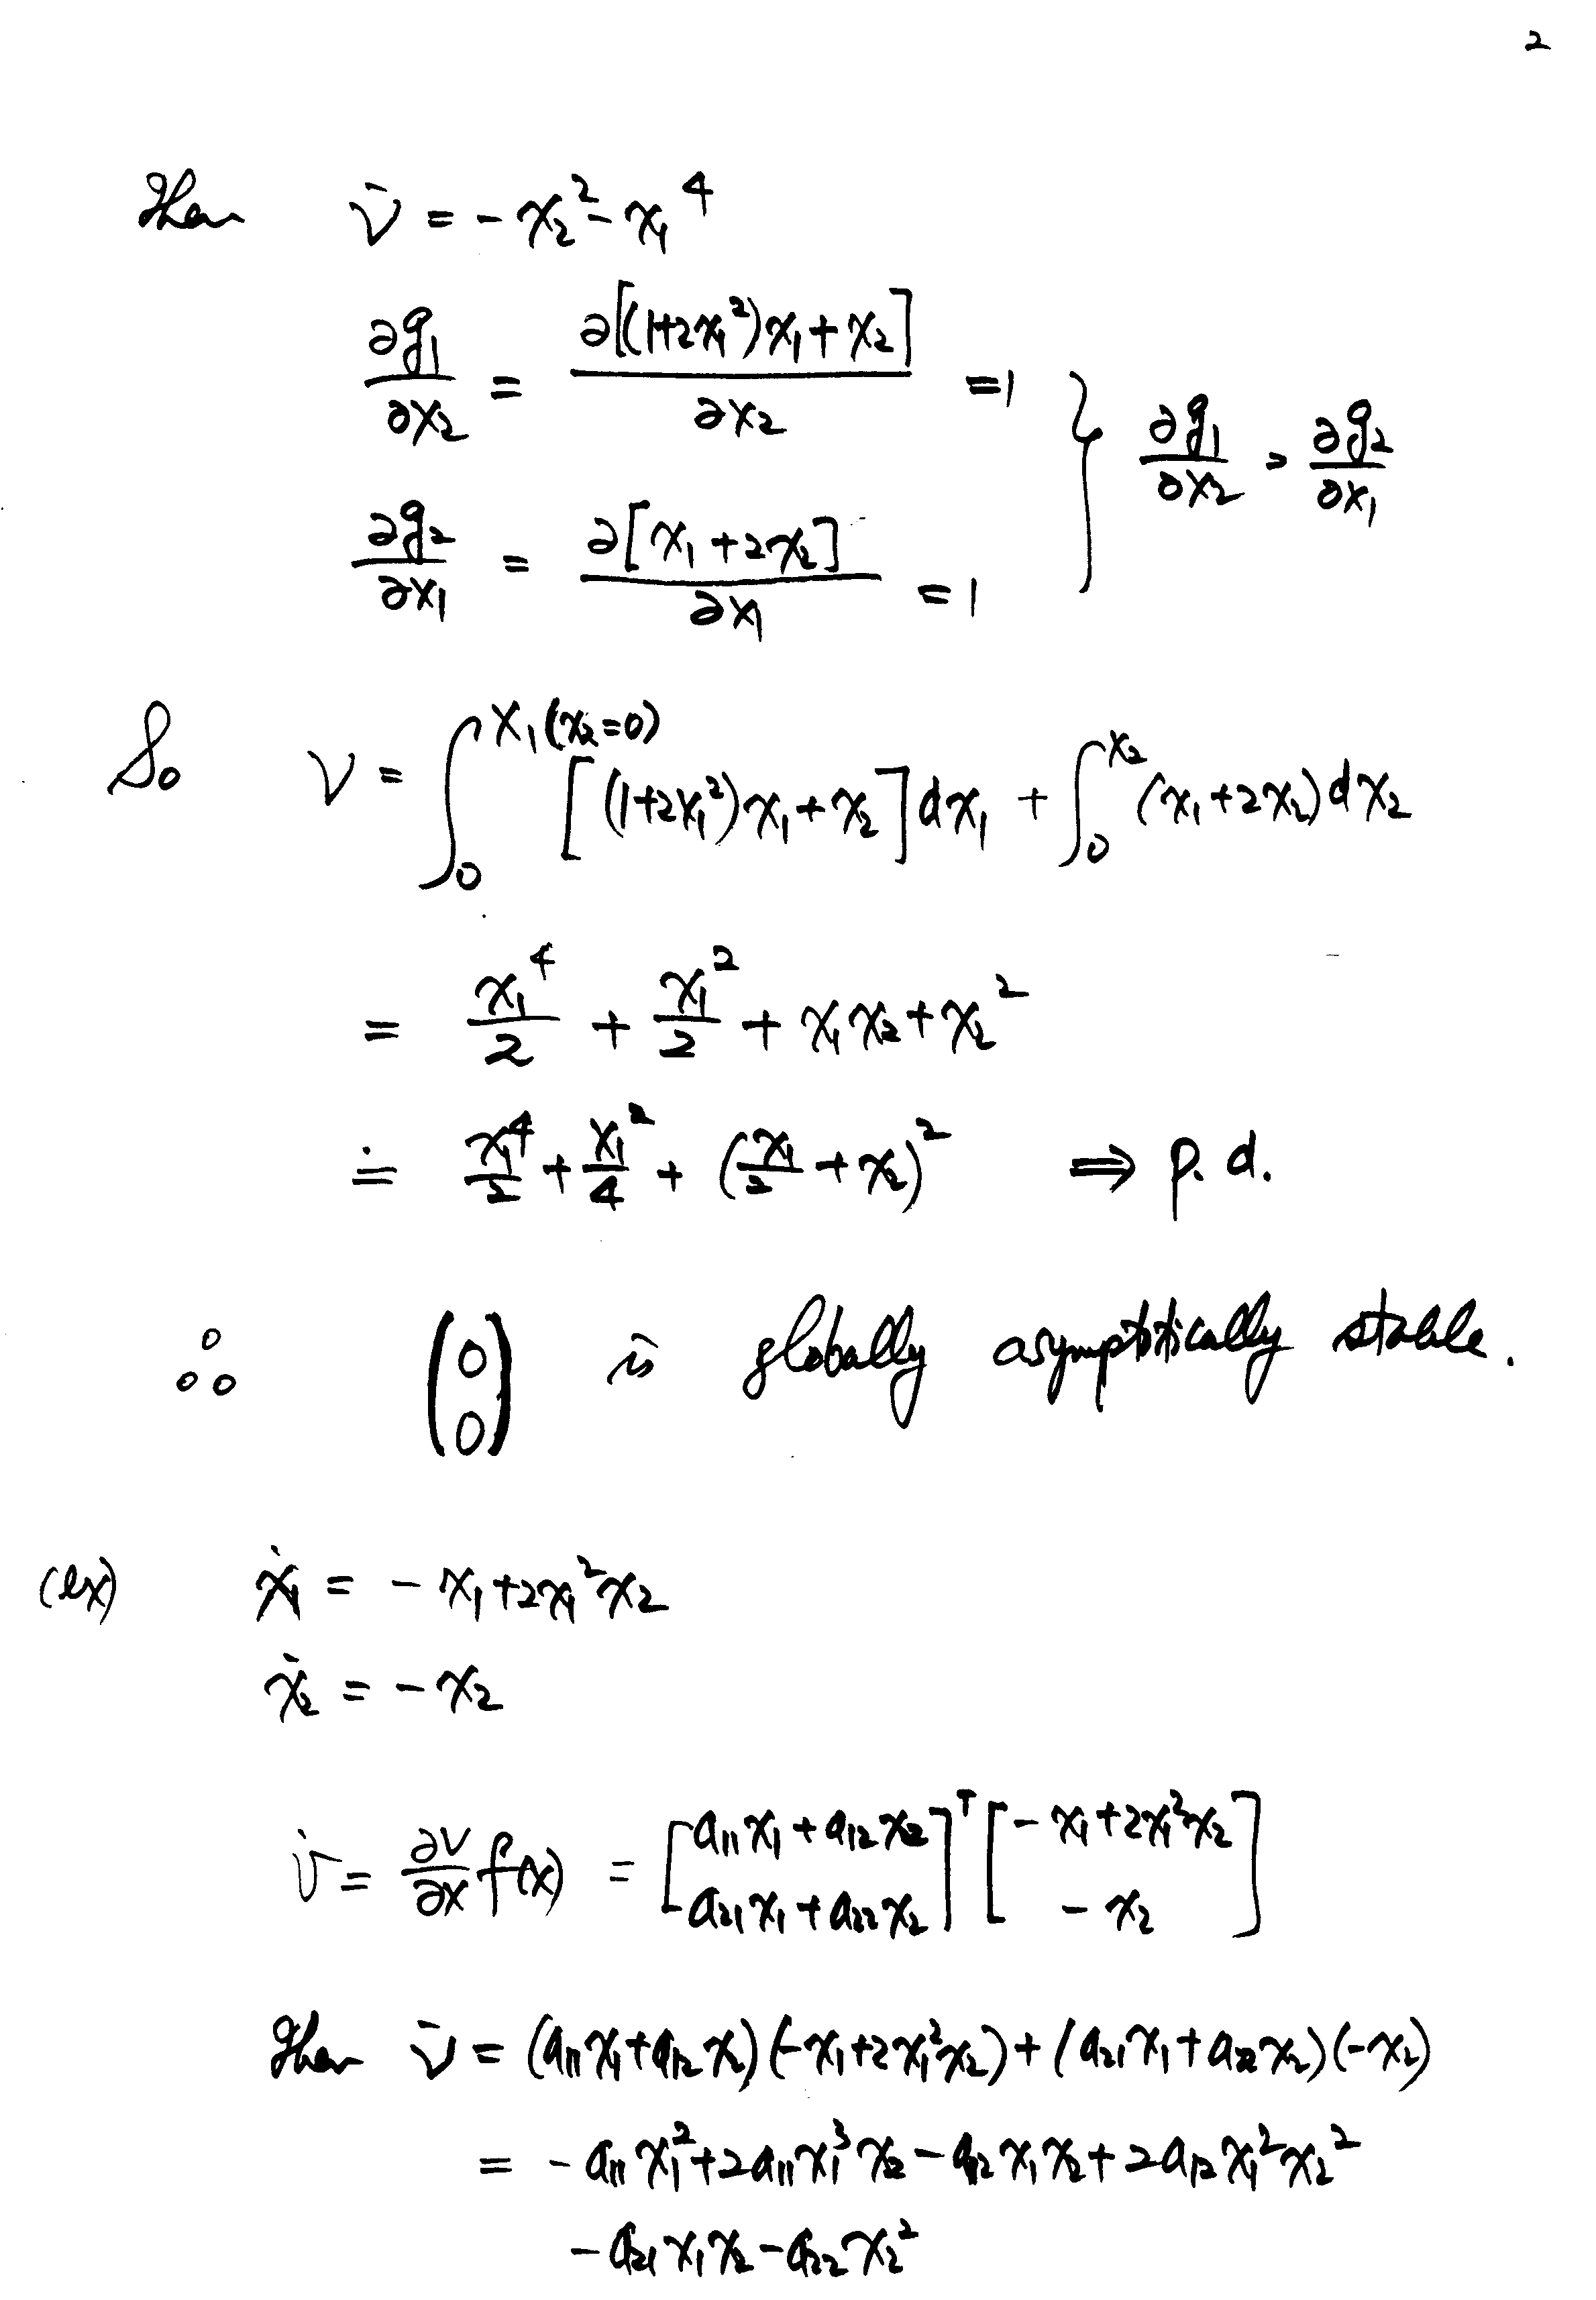 2
Then V̇ = -x₂² - x₁⁴
∂g₁/∂x₂ = ∂[(1+2x₁²)x₁+x₂]/∂x₂ = 1
∂g₂/∂x₁ = ∂[x₁+2x₂]/∂x₁ = 1 } ∂g₁/∂x₂ = ∂g₂/∂x₁
So V = ∫₀^{x₁(x₂=0)} [(1+2x₁²)x₁+x₂]dx₁ + ∫₀^{x₂} (x₁+2x₂)dx₂
= x₁⁴/2 + x₁²/2 + x₁x₂ + x₂²
≐ x₁⁴/2 + x₁²/4 + (x₁/2 + x₂)² ⟹ p.d.
∴ (0 0) is globally asymptotically stable.
(ex) ẋ₁ = -x₁+2x₁²x₂
ẋ₂ = -x₂
V̇ = ∂V/∂x f(x) = [a₁₁x₁+a₁₂x₂ a₂₁x₁+a₂₂x₂]ᵀ [-x₁+2x₁²x₂ -x₂]
Then V̇ = (a₁₁x₁+a₁₂x₂)(-x₁+2x₁²x₂)+(a₂₁x₁+a₂₂x₂)(-x₂)
= -a₁₁x₁²+2a₁₁x₁³x₂-a₁₂x₁x₂+2a₁₂x₁²x₂²
-a₂₁x₁x₂-a₂₂x₂²